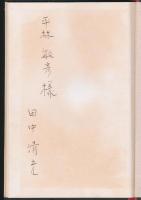 平林 敏彦 様
田中 清光